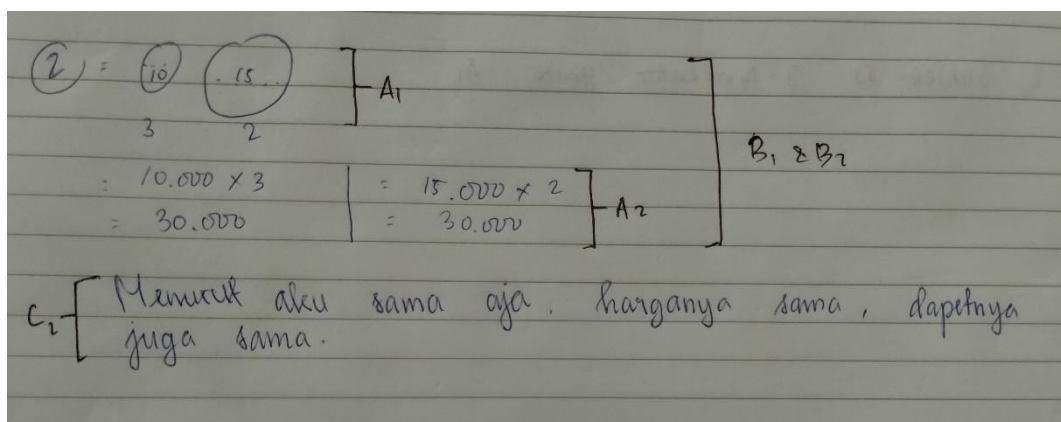 2 = 10 15 A1
3 2
= 10.000 x 3 = 15.000 x 2
= 30.000 = 30.000 A2
B1 & B2
C2 Menurut aku sama aja. harganya sama, dapetnya
juga sama.